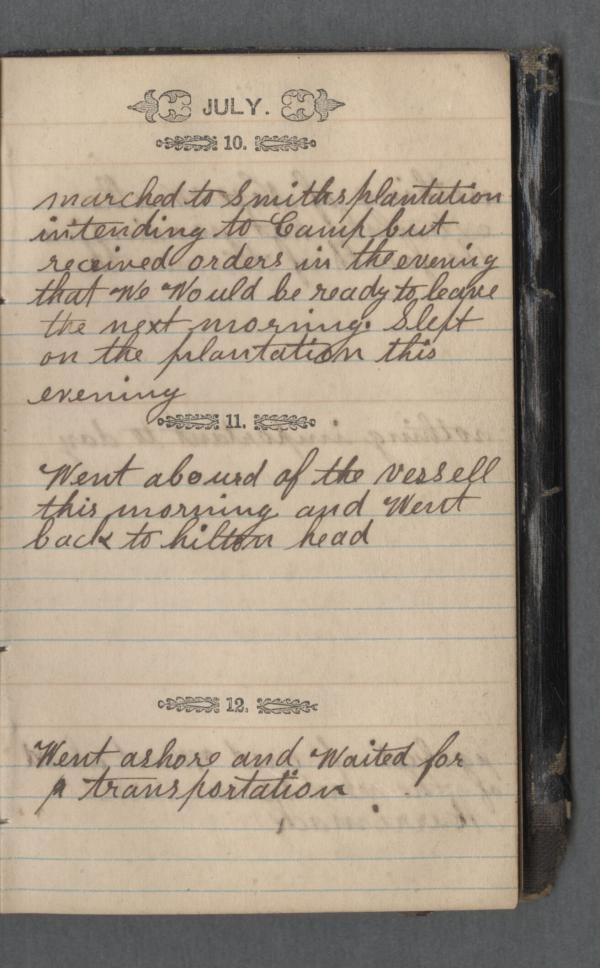 JULY.
10.
marched to Smiths plantation
intending to Camp but
received orders in the evening
that We Would be ready to leave
the next morning. Slept
on the plantation this
evening
11.
Went abourd of the vessell
this morning and Went
back to hilton head
12.
Went ashore and Waited for
a transportation